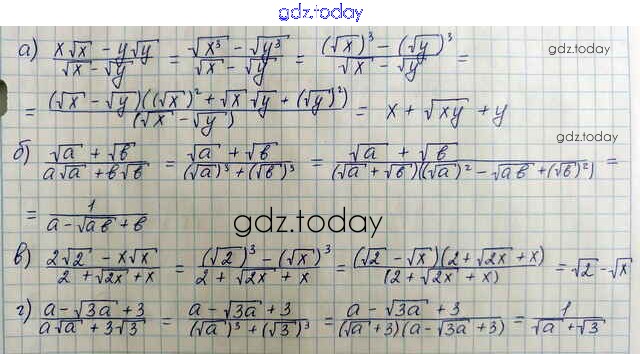 gdz.today
а) (x√x - y√y)/(√x - √y) = (√x³ - √y³)/(√x - √y) = ((√x)³ - (√y)³)/(√x - √y) =
gdz.today
= ((√x - √y)((√x)² + √x √y + (√y)²))/(√x - √y) = x + √xy + y
gdz.today
б) (√a + √b)/(a√a + b√b) = (√a + √b)/((√a)³ + (√b)³) = (√a + √b)/((√a + √b)((√a)² - √ab + (√b)²)) =
= 1/(a - √ab + b)
gdz.today
в) (2√2 - x√x)/(2 + √2x + x) = ((√2)³ - (√x)³)/(2 + √2x + x) = ((√2 - √x)(2 + √2x + x))/(2 + √2x + x) = √2 - √x
г) (a - √3a + 3)/(a√a + 3√3) = (a - √3a + 3)/((√a)³ + (√3)³) = (a - √3a + 3)/((√a + 3)(a - √3a + 3)) = 1/(√a + √3)